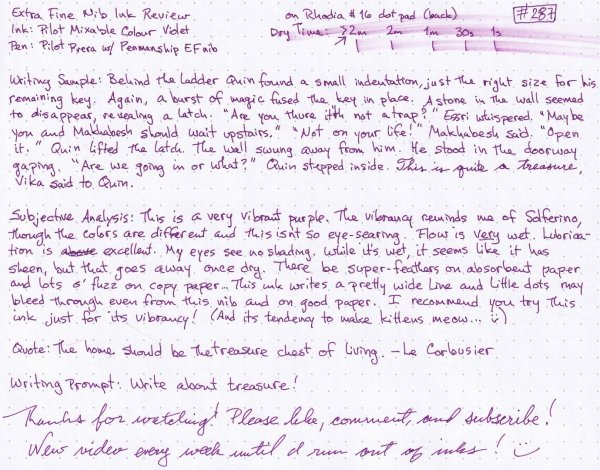 Extra Fine Nib Ink Review
on Rhodia #16 dot pad (back)
#287
Ink: Pilot Mixable Colour Violet
Dry Time: >2m 2m 1m 30s 1s
Pen: Pilot Prera w/ Penmanship EF nib
Writing Sample: Behind the ladder Quin found a small indentation, just the right size for his
remaining key. Again, a burst of magic fused the key in place. A stone in the wall seemed
to disappear, revealing a latch. "Are you thure itth not a trap?" Essri whispered. "Maybe
you and Makhabesh should wait upstairs." "Not on your life!" Makhabesh said. "Open
it." Quin lifted the latch. The wall swung away from him. He stood in the doorway
gaping. "Are we going in or what?" Quin stepped inside. This is quite a treasure,
Vika said to Quin.
Subjective Analysis: This is a very vibrant purple. The vibrancy reminds me of Solferino,
though the colors are different and this isnt so eye-searing. Flow is very wet. Lubrica-
tion is above excellent. My eyes see no shading. While it's wet, it seems like it has
sheen, but that goes away once dry. There be super-feathers on absorbent paper
and lots o' fuzz on copy paper... This ink writes a pretty wide line and little dots may
bleed through even from this nib and on good paper. I recommend you try this
ink just for its vibrancy! (And its tendency to make kittens meow... :)
Quote: The home should be the treasure chest of living. - Le Corbusier
Writing Prompt: Write about treasure!
Thanks for watching! Please like, comment, and subscribe!
New video every week until I run out of inks! :)